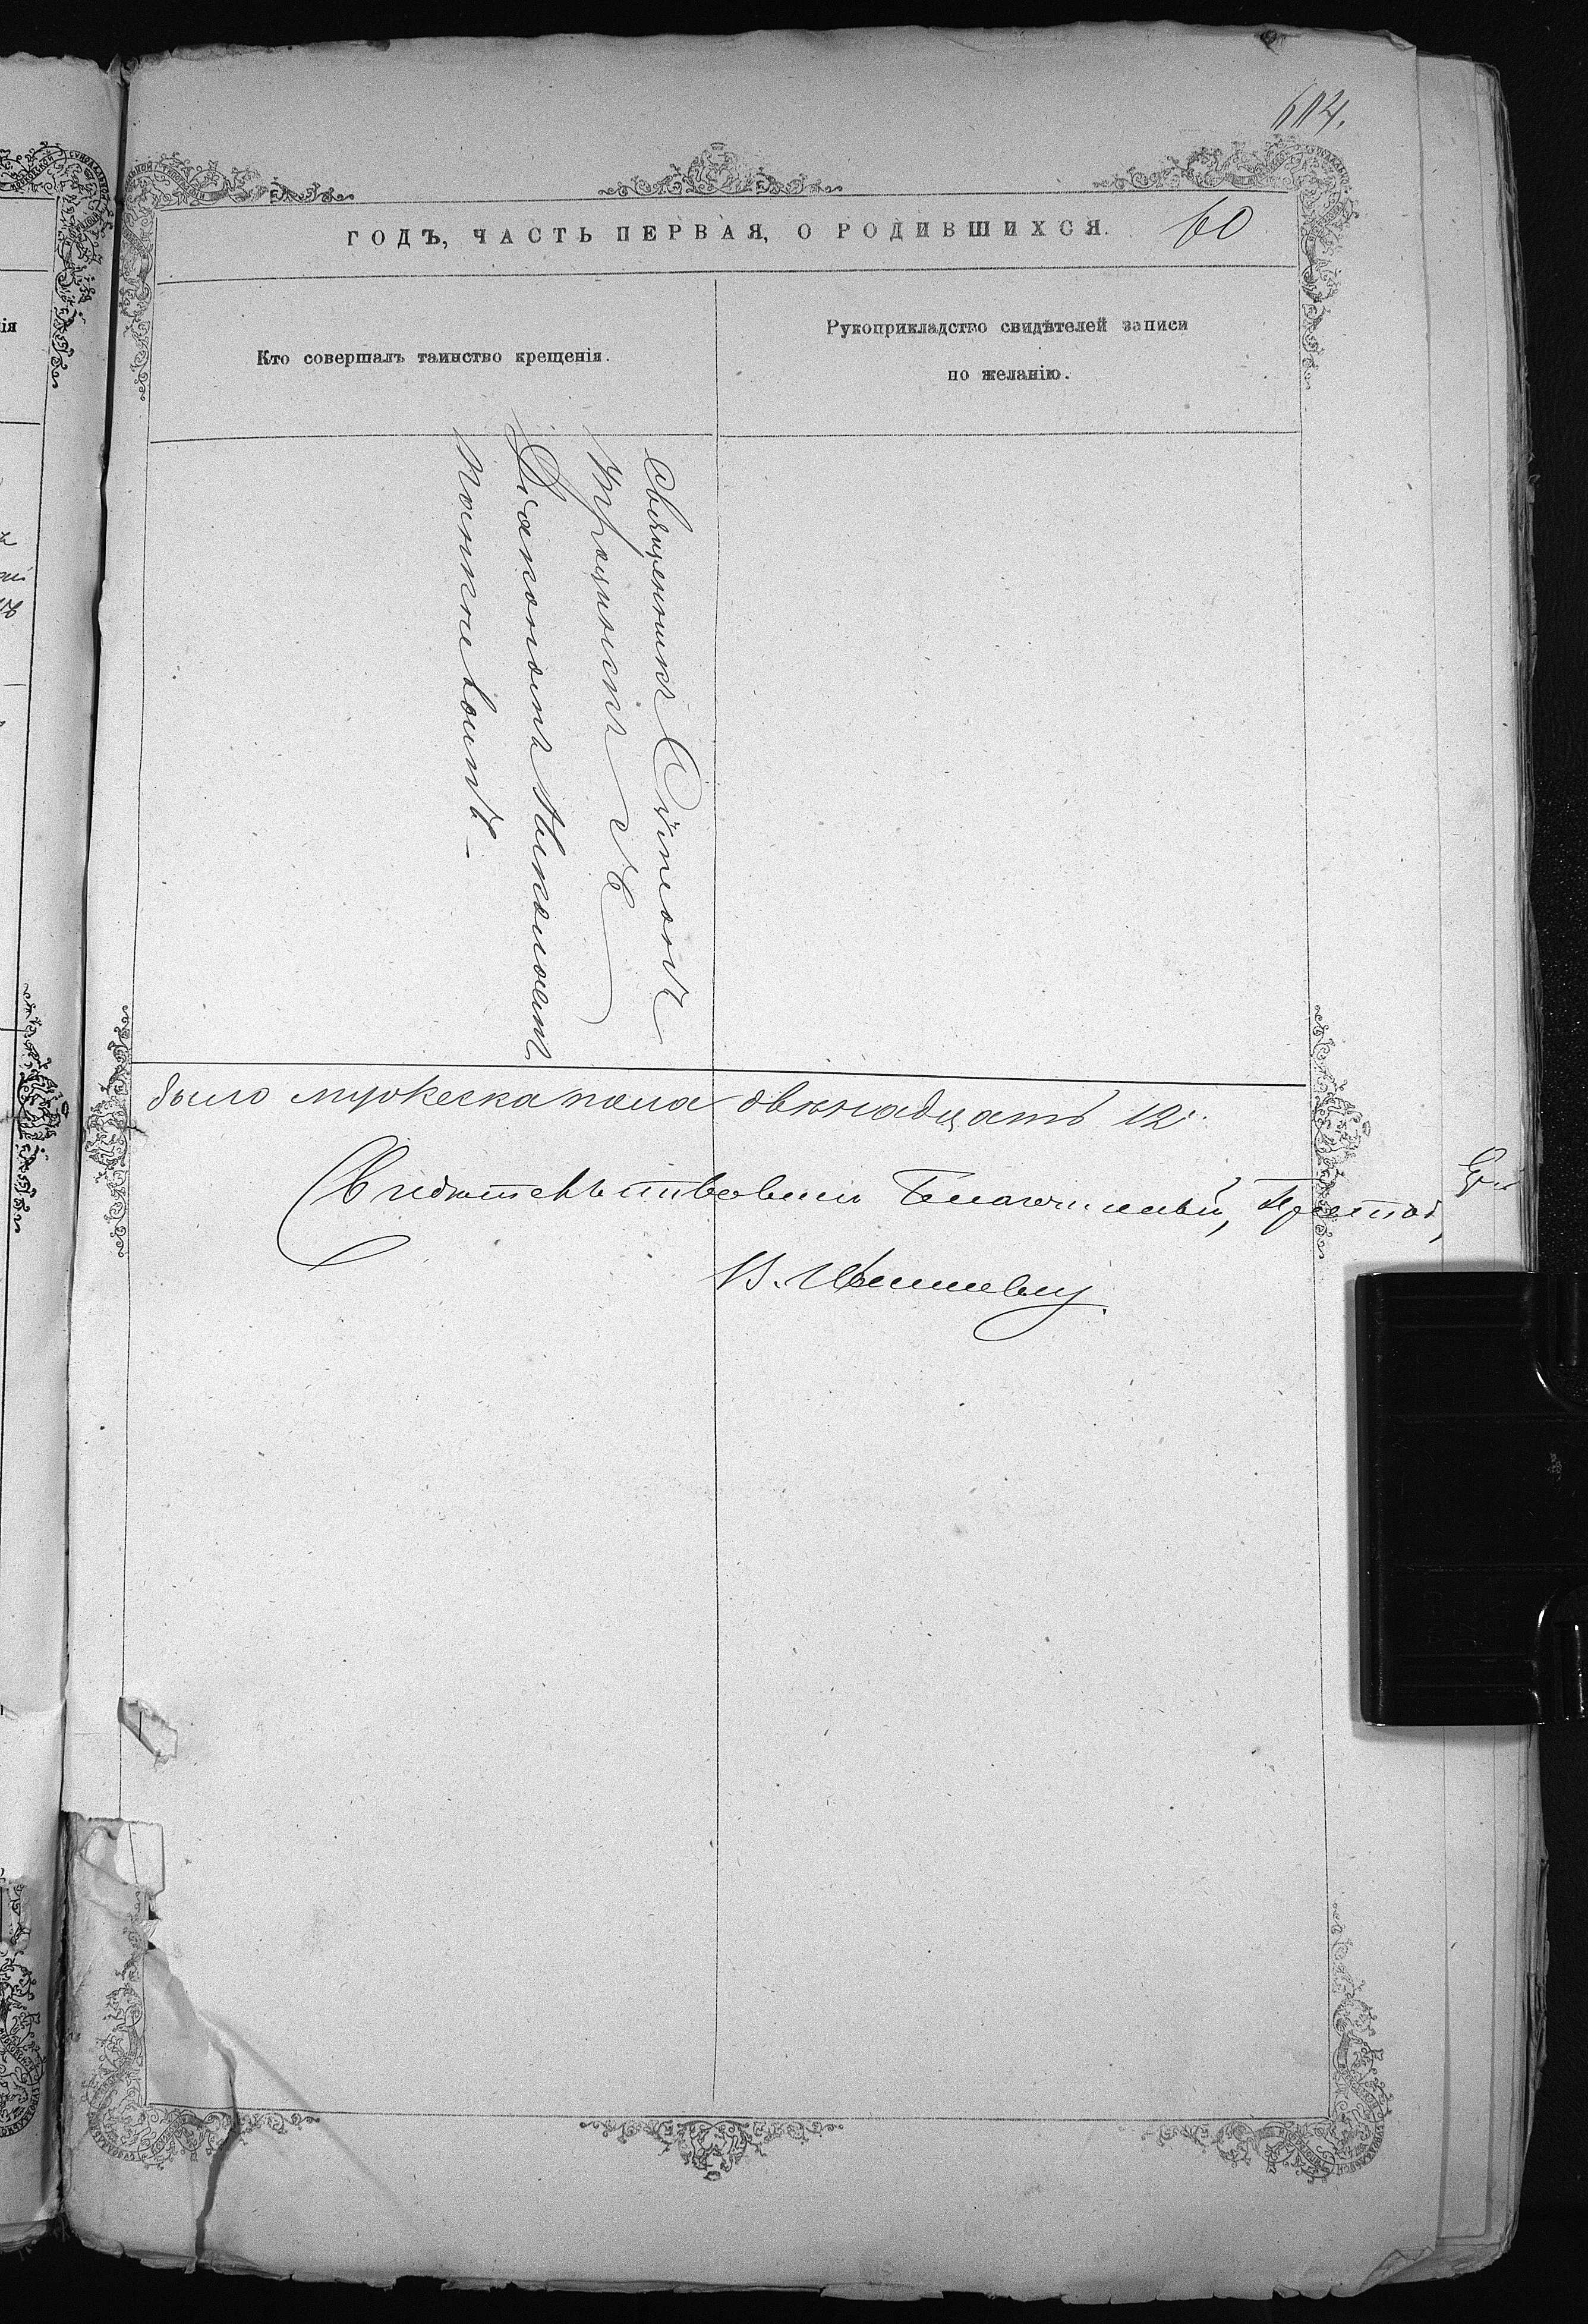 604.
ГОДЪ, ЧАСТЬ ПЕРВАЯ, О РОДИВШИХСЯ. 60
Кто совершалъ таинство крещенія.
Рукоприкладство свидѣтелей записи
по желанію.
Священникъ Симеонъ
съ
Діакономъ Николаемъ
было мужеска пола двѣнадцать 12.
Свидѣтельствовалъ Благочинный,
В.